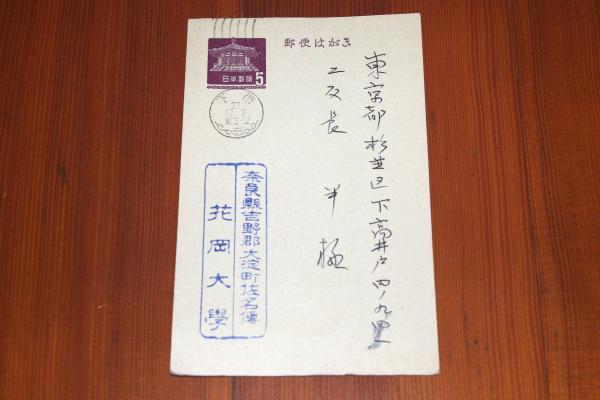 郵便はがき
日本郵便
5
東京都杉並区下高井戸四ノ九四一
二反長半極
奈良縣吉野郡大淀町佐名傳
花岡大學